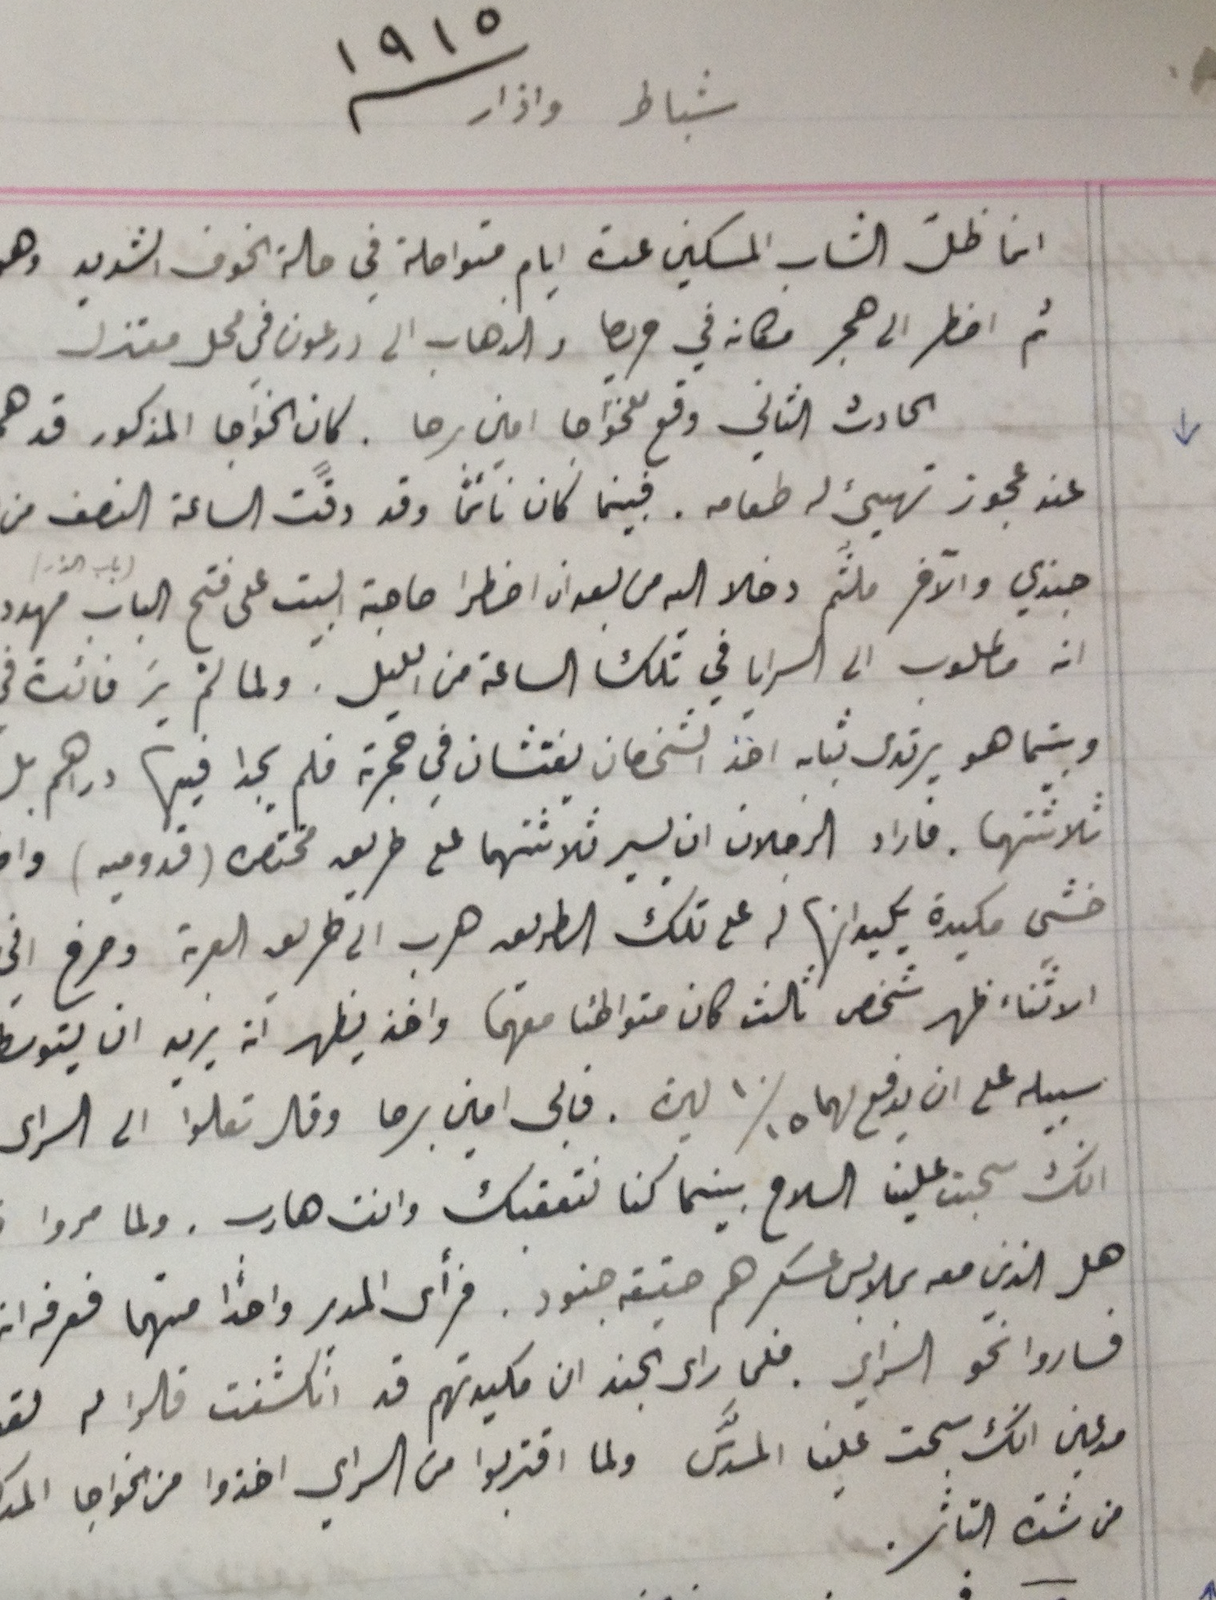 ١٩١٥
شباط واذار
انما ظل الشاب المسكين عدة ايام متواصلة في حالة الخوف الشديد وهو
ثم اضطر الى هجر مكانه في حريصا والذهاب الى درعون في محل معتزل
الحادث الثاني وقع للخواجا امين رحا . كان الخواجا المذكور قد
عند عجوز تهيئ له طعامه . فبينما كان نائمًا وقد دقت الساعة النصف من
جندي والآخر ملثم دخلا اليه من بعد ان اضطرا صاحبة البيت على فتح الباب
انه مطلوب الى السرايا في تلك الساعة من الليل . ولما لم يرَ فائدة في
وبينما هو يرتدي ثيابه اخذ الشخصان يفتشان في حجرته فلم يجدا فيها دراهم بل
ثلاثتهما . فاراد الرجلان ان يسير ثلاثتهما على طريق مختصره (قدوميه)
خشي مكيدة يكيدانها له على تلك الطريق هرب الى طريق العربة وصرخ
الاثناء ظهر شخص ثالث كان متواطئا معهما واخذ يظهر انه يريد ان يتوسط
سبيله على ان يدفع لهما ليرة . فابى امين رحا وقال تعلوا الى السراي
انك سحبت علينا السلاح بينما كنا نتعقبك وانت هارب . ولما مروا
هل الذين معه بملابس عسكر هم حقيقه جنود . فرأى المدير واحدًا منهما فعرفه
فساروا نحو السراي . فلما رأى الجند ان مكيدتهم قد انكشفت قالوا له
مدعين انك سحبت علينا المسدس ولما اقتربوا من السراي اخذوا من الخواجا
من شدة التأثر .